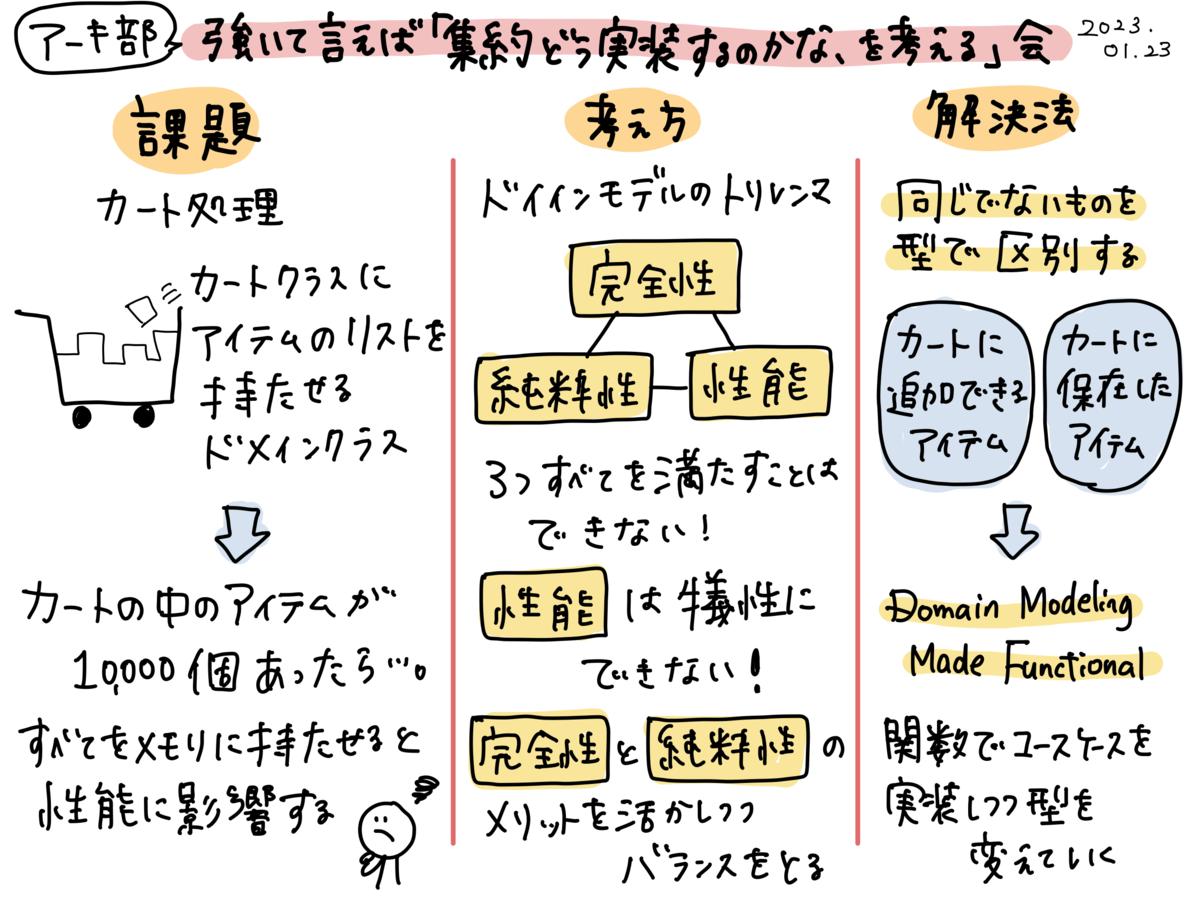 アーキ部
強いて言えば「集約どう実装するのかな、を考える」会
2023.
01.23
課題
カート処理
カートクラスに
アイテムのリストを
持たせる
ドメインクラス
カートの中のアイテムが
10,000個あったら…。
すべてをメモリに持たせると
性能に影響する
考え方
ドイインモデルのトリレンマ
完全性
純粋性
性能
3つすべてを満たすことは
できない!
性能は犠牲に
できない!
完全性と純粋性の
メリットを活かしつつ
バランスをとる
解決法
同じでないものを
型で区別する
カートに
追加できる
アイテム
カートに
保存した
アイテム
Domain Modeling
Made Functional
関数でユースケースを
実装しつつ型を
変えていく